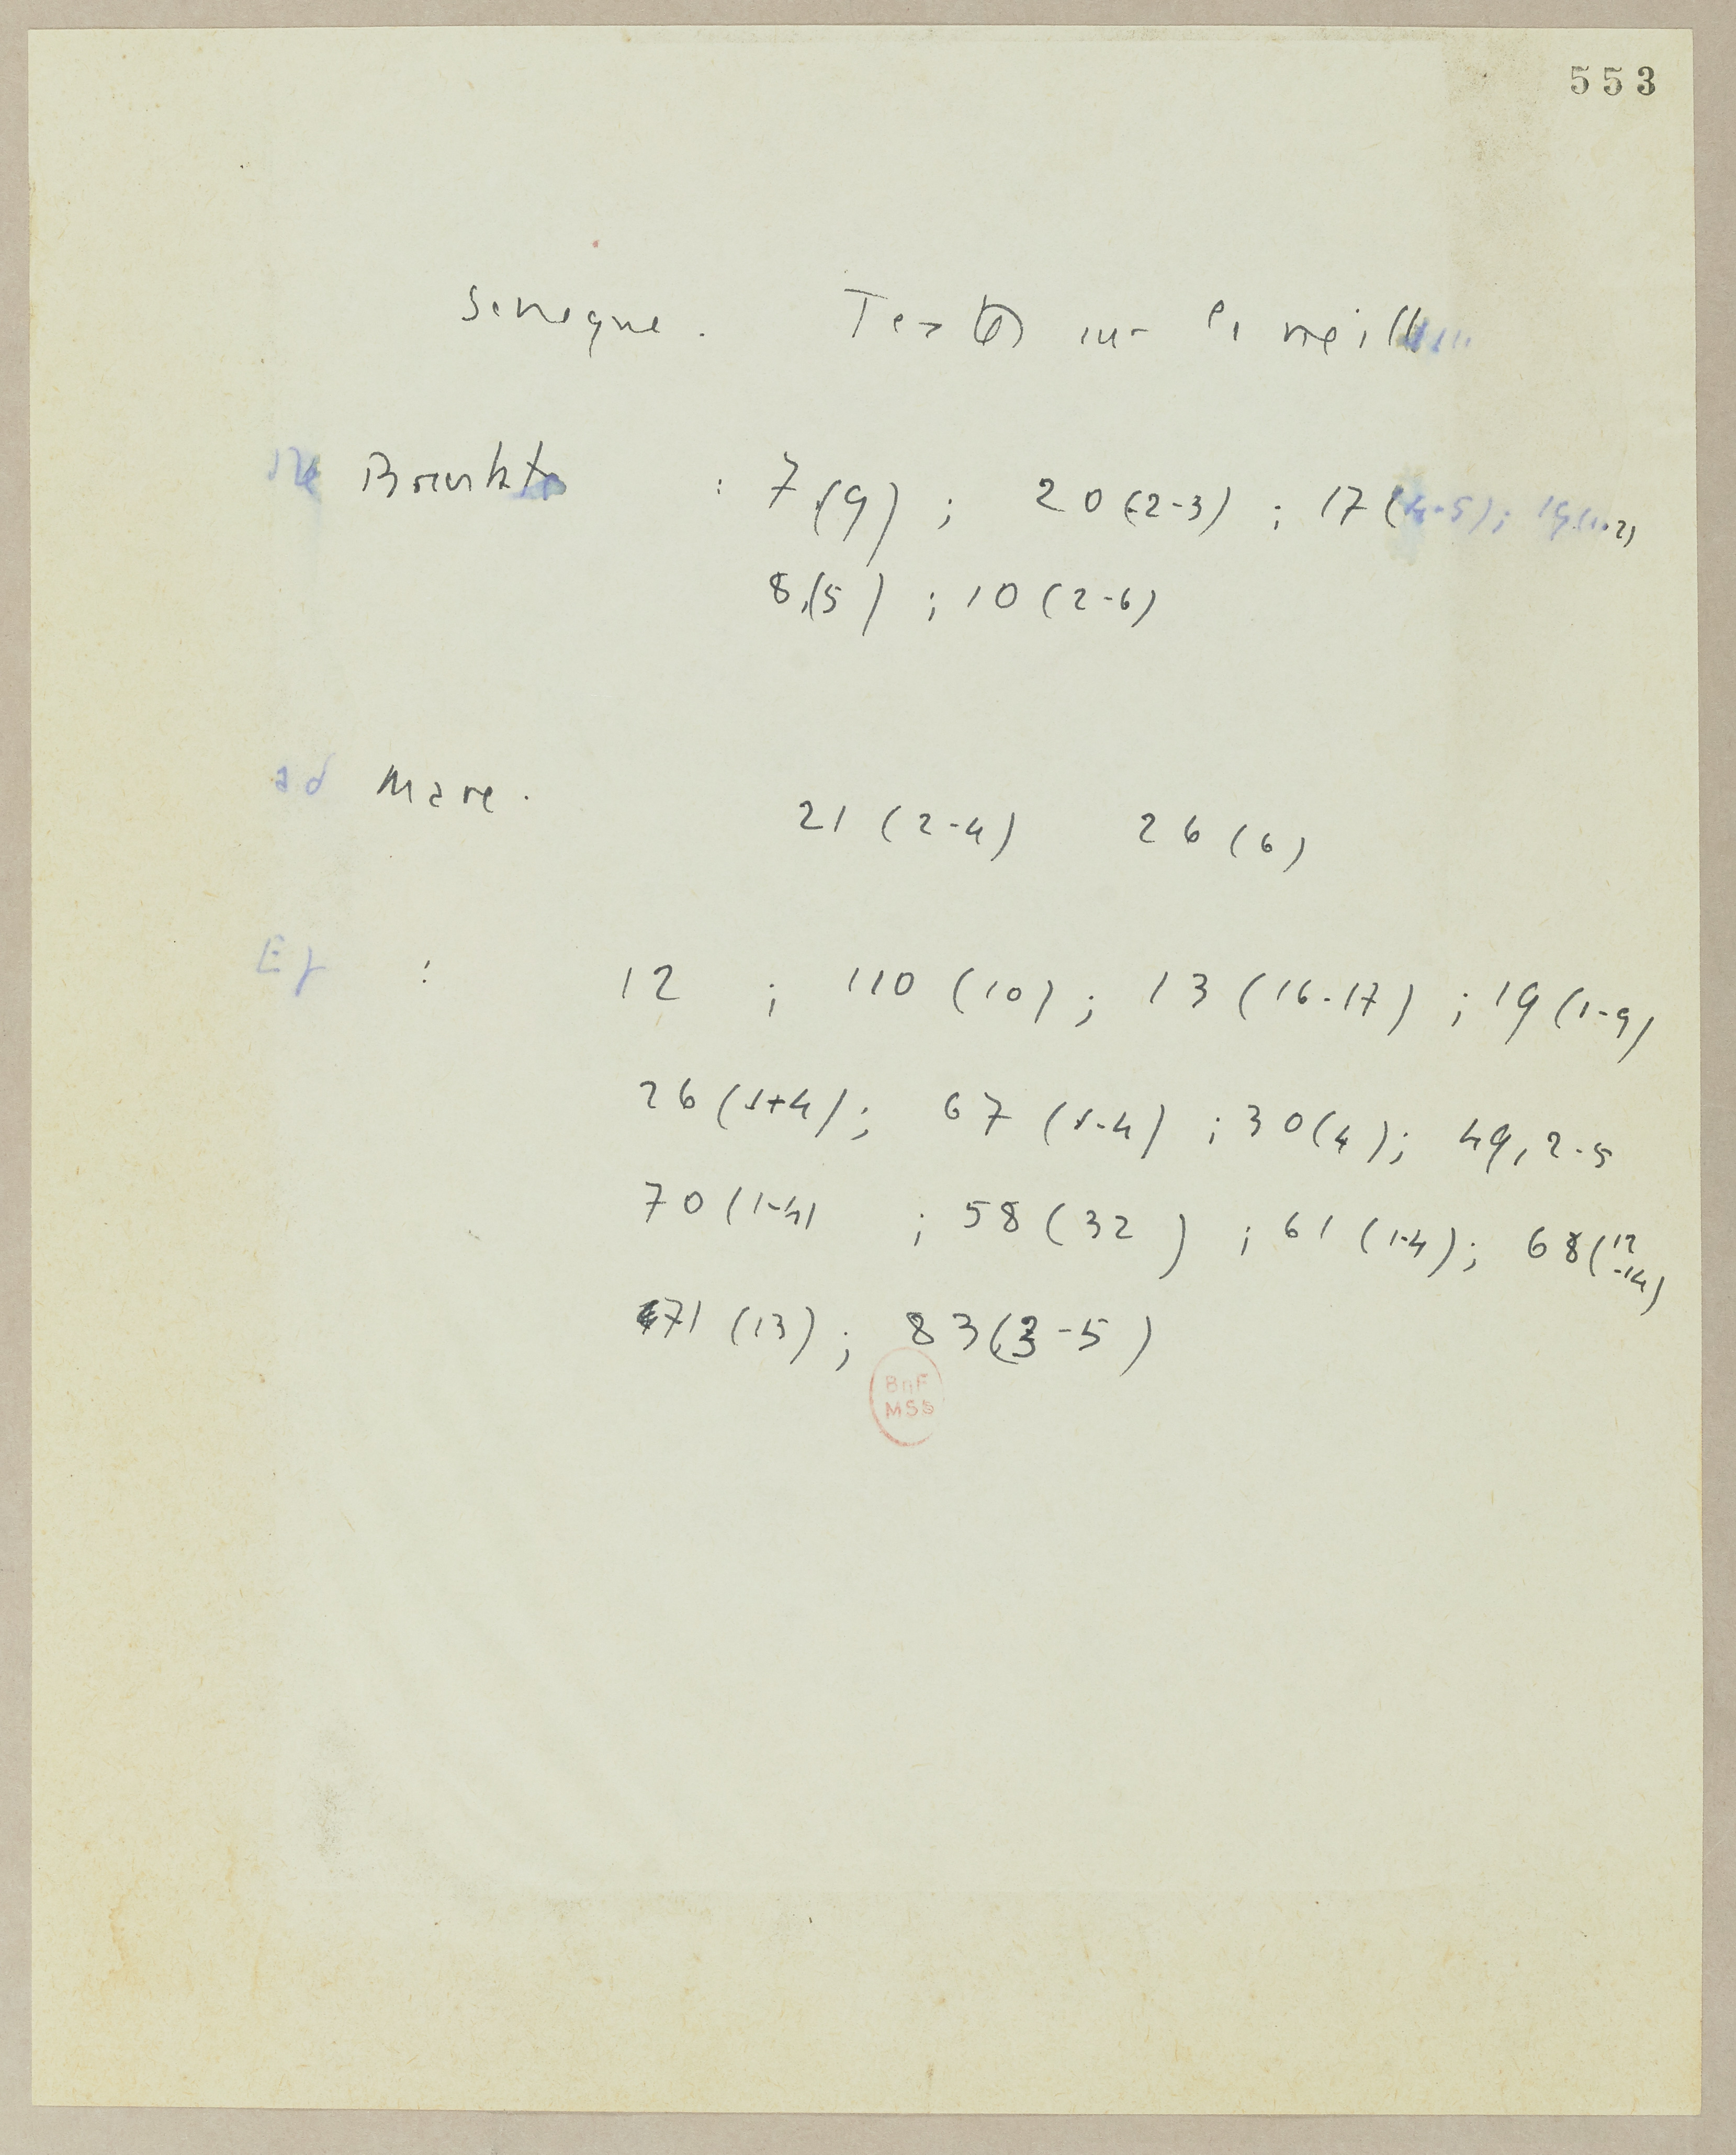 553
Seneque. Textes sur la vieillesse
De Brevitate : 7,(9) ; 20(2-3) ; 17(4-5); 19(1-2)
8,(5) ; 10(2-6)
ad Marc. 21(2-4) 26(6)
Ep : 12 ; 110(10); 13(16-17) ; 19(1-9)
26(1-4); 67(1-4) ; 30(4); 49,2-5
70(1-4) ; 58(32) ; 61(1-4); 68(12-14)
71(13); 83(3-5)
BnF
MSS